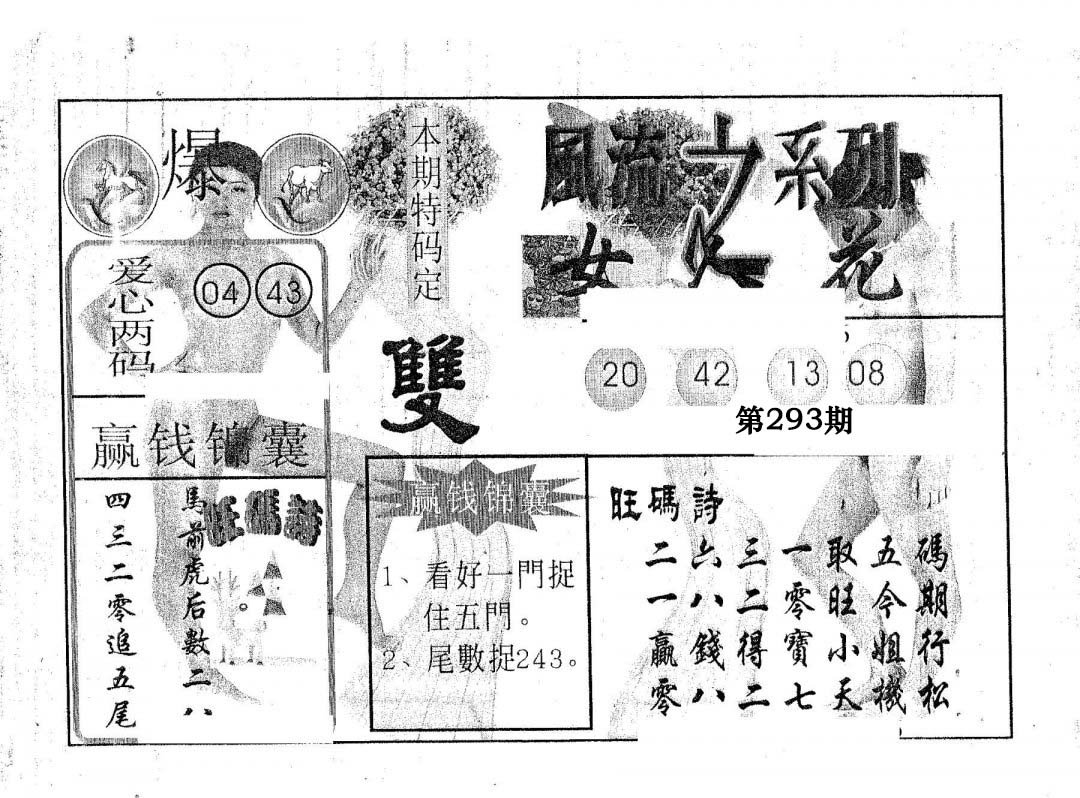 爆
本期特码定
雙
風流之系列
女人花
爱心两码
04 43
20 42 13 08
第293期
赢钱锦囊
馬前虎后數二八
四三二零追五尾
旺碼詩
赢钱锦囊
1、看好一門捉
住五門。
2、尾數捉243。
旺碼詩
碼期行松
五今姐機
取旺小天
一零寶七
三二得二
六八錢八
二一贏零